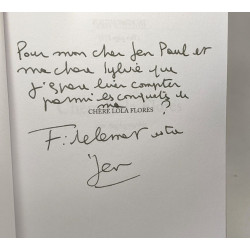 Pour mon cher Jen Paul et
ma chère Sylvie que
j'espère bien compter
parmi les conquêts de
ma
CHÈRE LOLA FLORES
?
Fidèlement votre
Jen